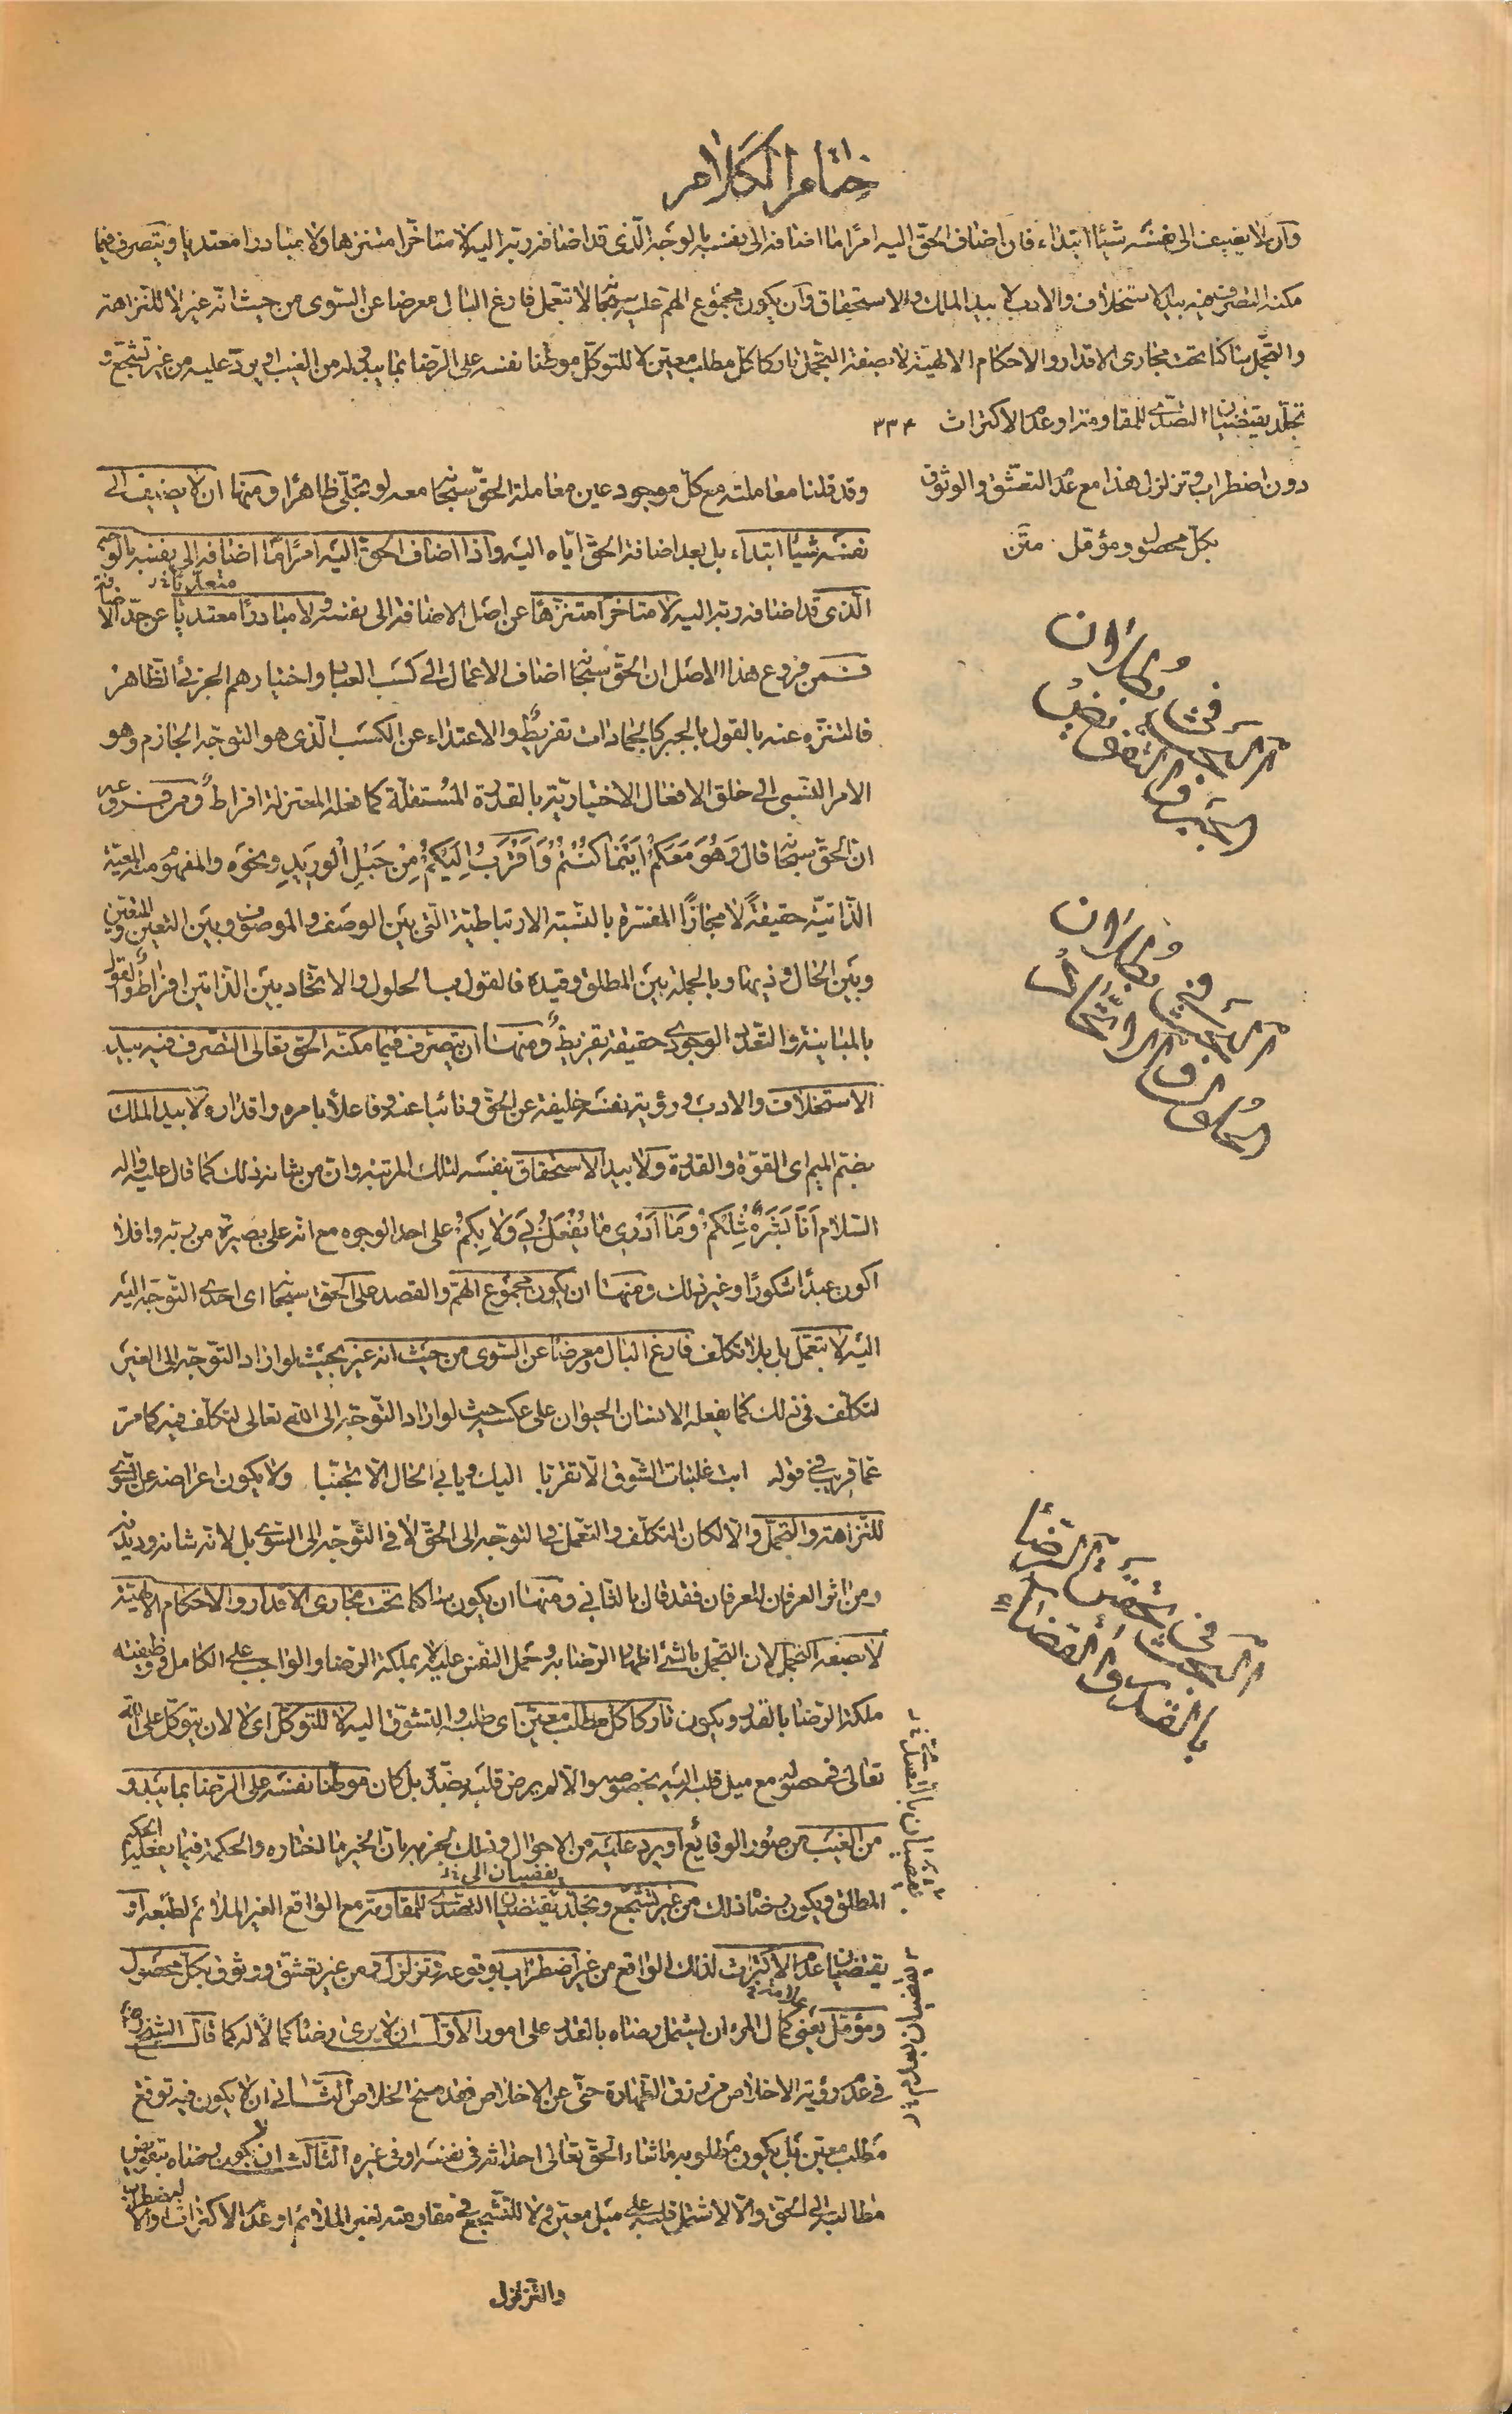 ختام الكلام
وان لا يضيف الى نفسه شيئا ابتداء فان اضاف الحق اليه امرا ما اضافه الى نفسه بالوجه الذى قد اضافه ربه اليه لا متاخرا متنزها ولا مبادرا معتديا ويتصرف فيما
مكنه التصرف فيه بيد الاستخلاف والادب لا بيد الملك والاستحقاق وان يكون مجموع الهم عليه سبحانه لا بتعمل فارغ البال معرضا عن السوى من حيث انه غير لا للنزاهة
والتجمل ساكنا تحت مجارى الاقدار والاحكام الالهية لا بصفة التجمل تاركا كل مطلب معين لا للتوكل موطنا نفسه على الرضا بما يبدو له من الغيب او يرد عليه من غير تشجع و
تجلد يقتضيان التصدى للمقاومة او عدم الاكتراث ٣٣٤
دون اضطراب وتزلزل هذا مع عدم التعشق والوثوق
بكل محصول ومؤمل متن
وقد قلنا معاملته مع كل موجود عين معاملة الحق سبحانه معه لو تجلى ظاهرا ومنها ان لا يضيف الى
نفسه شيئا ابتداء بل بعد اضافة الحق اياه اليه واذا اضاف الحق اليه امرا ما اضافه الى نفسه بالوجه
الذى قد اضافه ربه اليه لا متاخرا متنزها عن اصل الاضافة الى نفسه ولا مبادرا معتديا عن حد الاضافة
فمن فروع هذا الاصل ان الحق سبحانه اضاف الاعمال الى كسب العباد واختيارهم الجزئى الظاهر
فالتنزه عنه بالقول بالجبر كالجمادات تفريط والاعتداء عن الكسب الذى هو التوجه الجازم وهو
الامر النسبى الى خلق الافعال الاختيارية بالقدرة المستقلة كما فعله المعتزلة افراط ومن فروعه
ان الحق سبحانه قال وَهُوَ مَعَكُمْ اَيْنَمَا كُنْتُمْ وَاَقْرَبُ اِلَيْكُمْ مِنْ حَبْلِ الْوَرِيدِ ونحوه والمفهوم منه المعية
الذاتية حقيقة لا مجازا المفسرة بالنسبة الارتباطية التى بين الوصف والموصوف وبين التعين والمتعين
وبين الحال وذيها وبالجملة بين المطلق وقيده فالقول بالحلول والاتحاد بين الذاتين افراط والقول
بالمباينة والتعدد الوجودى حقيقة تفريط ومنها ان يتصرف فيما مكنه الحق تعالى التصرف فيه بيد
الاستخلاف والادب ورؤية نفسه خليفة عن الحق ونائبا عنه وفاعلا بامره واقداره لا بيد الملك
بضم الميم اى القوة والقدرة ولا بيد الاستحقاق بنفسه لتلك المرتبة وان من شانه ذلك كما قال عليه واله
السلام اَنَا بَشَرٌ مِثْلُكُمْ وَمَا اَدْرِى مَا يُفْعَلُ بِى وَلَا بِكُمْ على احد الوجوه مع انه على بصيرة من ربه وافلا
اكون عبدا شكورا وغير ذلك ومنها ان يكون مجموع الهم والقصد على الحق سبحانه اى احدى التوجه اليه
اليه لا بتعمل بل بلا تكلف فارغ البال معرضا عن السوى من حيث انه غير بحيث لو اراد التوجه الى الغير
لتكلف فى ذلك كما يفعله الانسان الحيوان على عكسه حيث لو اراد التوجه الى الله تعالى لتكلف فيه كما مر
عما قريب فى قوله ابت غلبات الشوق الا تقربا اليك ويابى الحال الا تجنبا ولا يكون اعراضه عن السوى
للنزاهة والتجمل والا لكان التكلف والتعمل فى التوجه الى الحق لا فى التوجه الى السوى بل لانه شانه وديدنه
ومن اثر العرفان للعرفان فقد قال بالثانى ومنها ان يكون ساكنا تحت مجارى الاقدار والاحكام الالهية
لا بصفة التجمل لان التجمل بالشئ اظهار الرضا به وحمل النفس عليه لا بملكة الرضا والواجب على الكامل فى وظيفته
ملكة الرضا بالقدر ويكون تاركا كل مطلب معين اى طلبه والتشوق اليه لا للتوكل اى لا لان يتوكل على الله
تعالى فى حصوله مع ميل قلبه اليه بخصوصه والا لم يرض قلبه بضده بل كان موطنا نفسه على الرضا بما يبدو
من الغيب من صور الوقائع او يرد عليه من الاحوال وذلك لجزمه بان الخير ما اختاره والحكمة فيما يفعله الحكيم
المطلق ويكون رضاه ذلك من غير تشجع وتجلد يقتضيان التصدى للمقاومة مع الواقع الغير الملائم لطبعه او
يقتضيان عدم الاكتراث لذلك الواقع من غير اضطراب بوقوعه وتزلزل ومن غير تعشق ووثوق بكل محصول
ومؤمل يعنى كمال المرء ان يشتمل رضاه بالقدر على امور الاول ان لا يرى رضاه كمالا له كما قال الشيخ رض
فى عدم رؤية الاخلاص من رزق الطهارة حتى عن الاخلاص فقد منح الخلاص الثانى ان لا يكون فيه توقع
مطلب معين بل يكون مطلوبه ما شاء الحق تعالى احداثه فى نفسه او فى غيره الثالث ان لا يكون رضاه بتفويض
مطالبه الى الحق والا لاشتمل قلبه على ميل معين ولا للتشجع فى مقاومته لغير الملائم او عدم الاكتراث والاضطراب
والتزلزل
مطلب ان
فى بطلان
البحث نصيب
الجبر والتفويض
مطلب ان
فى بطلان
البحث
الحلول والاتحاد
الرضا
فى تحقيق
البحث
بالقدر والقضاء